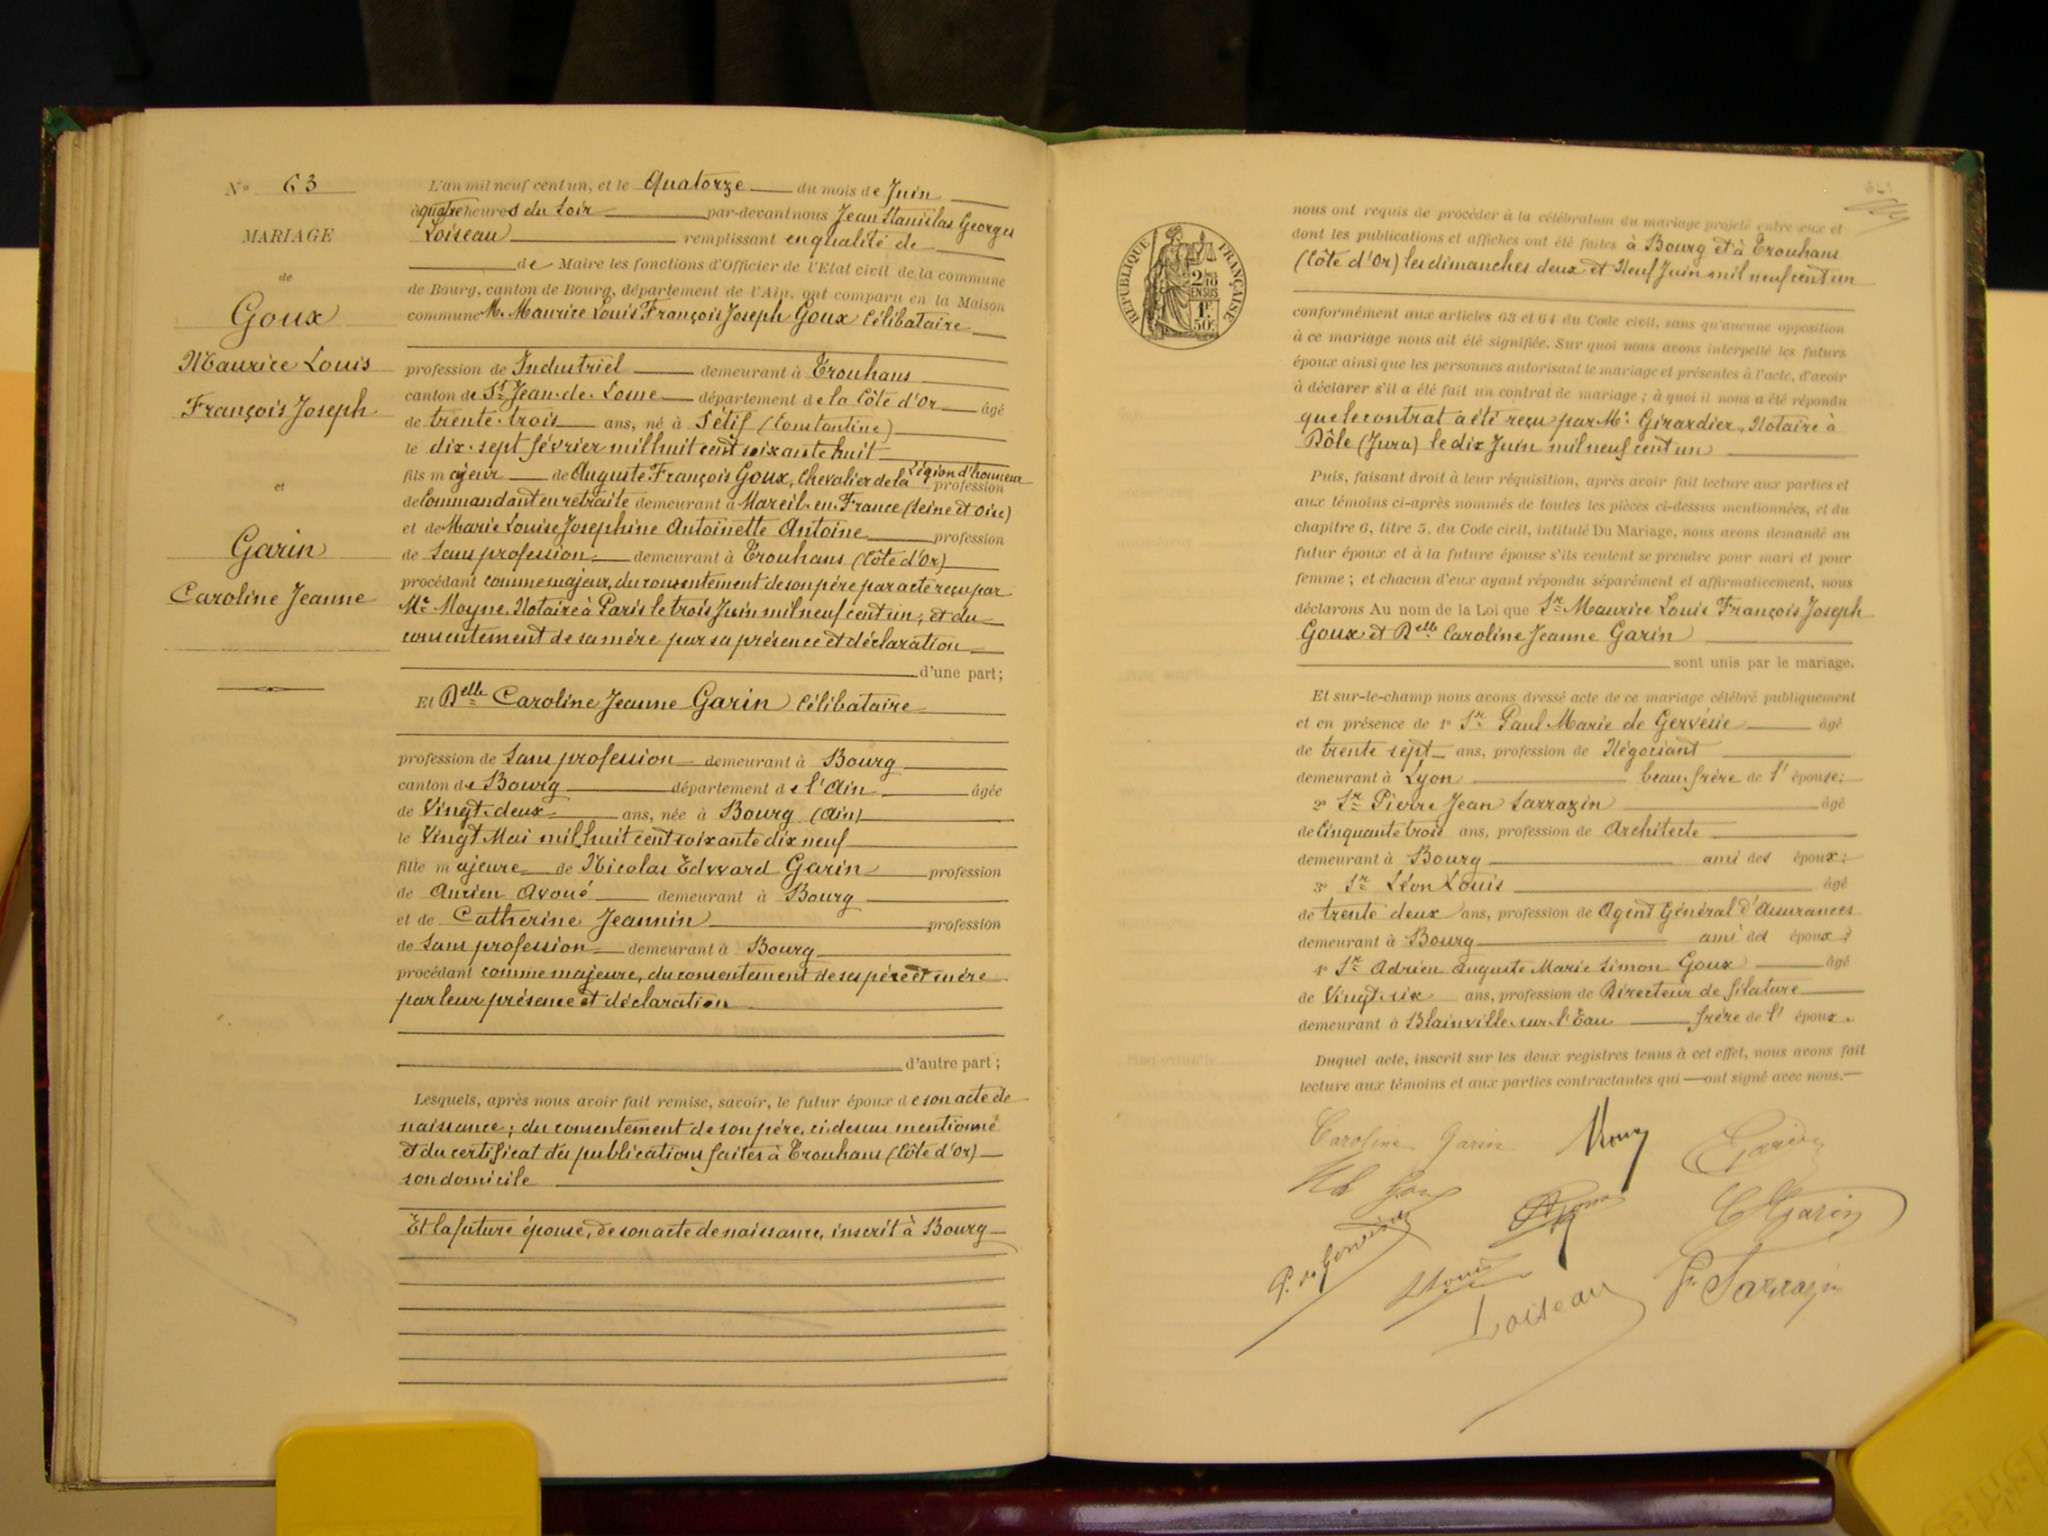 N° 63
MARIAGE
de
Goux
Maurice Louis
François Joseph
et
Garin
Caroline Jeanne
L'an mil neuf cent un, et le Quatorze du mois de Juin
à quatre heures du soir par-devant nous Jean Stanislas Georges
Loiseau remplissant en qualité de
de Maire les fonctions d'Officier de l'Etat civil de la commune
de Bourg, canton de Bourg, département de l'Ain, ont comparu en la Maison
commune M. Maurice Louis François Joseph Goux Célibataire
profession de Industriel demeurant à Trouhans
canton de St Jean-de-Losne département de la Côte d'Or âgé
de trente-trois ans, né à Sétif (Constantine)
le dix-sept février mil huit cent soixante huit
fils majeur de Auguste François Goux, Chevalier de la Légion d'honneur profession
de Commandant en retraite demeurant à Mareil-en-France (Seine et Oise)
et de Marie Louise Josephine Antoinette Antoine profession
de Sans profession demeurant à Trouhans (Côte d'Or)
procédant comme majeur, du consentement de son père par acte reçu par
Me Moyne, Notaire à Paris le trois Juin mil neuf cent un, et du
consentement de sa mère par sa présence et déclaration
d'une part;
Et Delle Caroline Jeanne Garin Célibataire
profession de Sans profession demeurant à Bourg
canton de Bourg département de l'Ain âgée
de Vingt-deux ans, née à Bourg (Ain)
le Vingt Mai mil huit cent soixante dix neuf
fille majeure de Nicolas Edward Garin profession
de Ancien Avoué demeurant à Bourg
et de Catherine Jeannin profession
de Sans profession demeurant à Bourg
procédant comme majeure, du consentement de ses père et mère
par leur présence et déclaration
d'autre part;
Lesquels, après nous avoir fait remise, savoir, le futur époux de son acte de
naissance; du consentement de son père, ci-dessus mentionné
et du certificat des publications faites à Trouhans (Côte d'Or)
son domicile
Et la future épouse, de son acte de naissance, inscrit à Bourg
RÉPUBLIQUE FRANÇAISE
2/10
EN SUS
1F
50c
nous ont requis de procéder à la célébration du mariage projeté entre eux et
dont les publications et affiches ont été faites à Bourg et à Trouhans
(Côte d'Or) les dimanches deux et Neuf Juin mil neuf cent un
conformément aux articles 63 et 64 du Code civil, sans qu'aucune opposition
à ce mariage nous ait été signifiée. Sur quoi nous avons interpellé les futurs
époux ainsi que les personnes autorisant le mariage et présentes à l'acte, d'avoir
à déclarer s'il a été fait un contrat de mariage; à quoi il nous a été répondu
que le contrat a été reçu par Me Girardier, Notaire à
Dôle (Jura) le dix Juin mil neuf cent un
Puis, faisant droit à leur réquisition, après avoir fait lecture aux parties et
aux témoins ci-après nommés de toutes les pièces ci-dessus mentionnées, et du
chapitre 6, titre 5, du Code civil, intitulé Du Mariage, nous avons demandé au
futur époux et à la future épouse s'ils veulent se prendre pour mari et pour
femme; et chacun d'eux ayant répondu séparément et affirmativement, nous
déclarons Au nom de la Loi que Sr Maurice Louis François Joseph
Goux et Delle Caroline Jeanne Garin
sont unis par le mariage.
Et sur-le-champ nous avons dressé acte de ce mariage célébré publiquement
et en présence de 1° Sr Paul Marie de Gervésie âgé
de trente sept ans, profession de Négociant
demeurant à Lyon beau-frère de l'épouse;
2° Sr Pierre Jean Sarrazin âgé
de Cinquante trois ans, profession de Architecte
demeurant à Bourg ami des époux;
3° Sr Léon Louis âgé
de trente deux ans, profession de Agent Général d'Assurances
demeurant à Bourg ami des époux;
4° Sr Adrien Auguste Marie Simon Goux âgé
de Vingt-six ans, profession de Directeur de filature
demeurant à Blainville-sur-l'Eau frère de l'époux.
Duquel acte, inscrit sur les deux registres tenus à cet effet, nous avons fait
lecture aux témoins et aux parties contractantes qui ont signé avec nous.
Caroline Garin
Garin
Goux
C Garin
Louis
Loiseau
Sarrazin